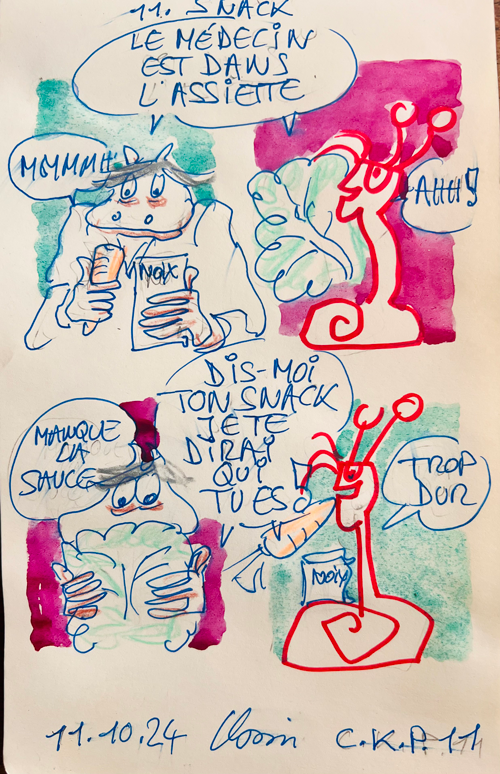 11. SNACK
LE MÉDECIN
EST DANS
L'ASSIETTE
MMMMH
AHH!
NOIX
DIS-MOI
TON SNACK
JE TE
DIRAI
QUI
TU ES
MANQUE
LA
SAUCE
TROP
DUR
NOIX
11.10.24
C.K.P. 11